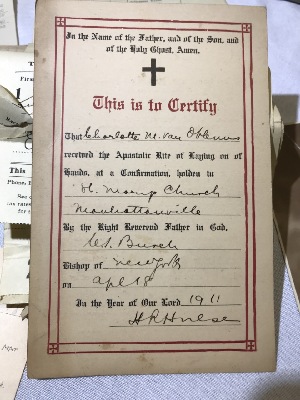 In the Name of the Father, and of the Son, and
of the Holy Ghost, Amen.
This is to Certify
That Charlotte M. Van
received the Apostolic Rite of Laying on of
Hands, at a Confirmation, holden in
St. Mary's Church
Manhattanville
By the Right Reverend Father in God,
Burch
Bishop of New York
on Apl 18
In the Year of Our Lord 1911
H R Hulse
This